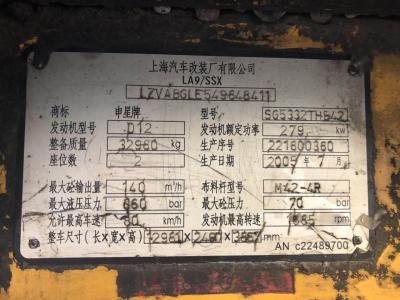 上海汽车改装厂有限公司
LA9/SSX
商标 申星牌 型号: SG5332THB42
发动机型号 D12 发动机额定功率 279 kw
整备质量 32980 kg 生产序号 221600360
座位数 2 生产日期 2005 年 7 月
最大砼输出量 140 m³/h 布料杆型号 M42-4R
最大液压压力 bar 最大砼压力 70 bar
允许最高车速 80 km/h 发动机最高转速 rpm
整车尺寸(长×宽×高)
AN c22489700